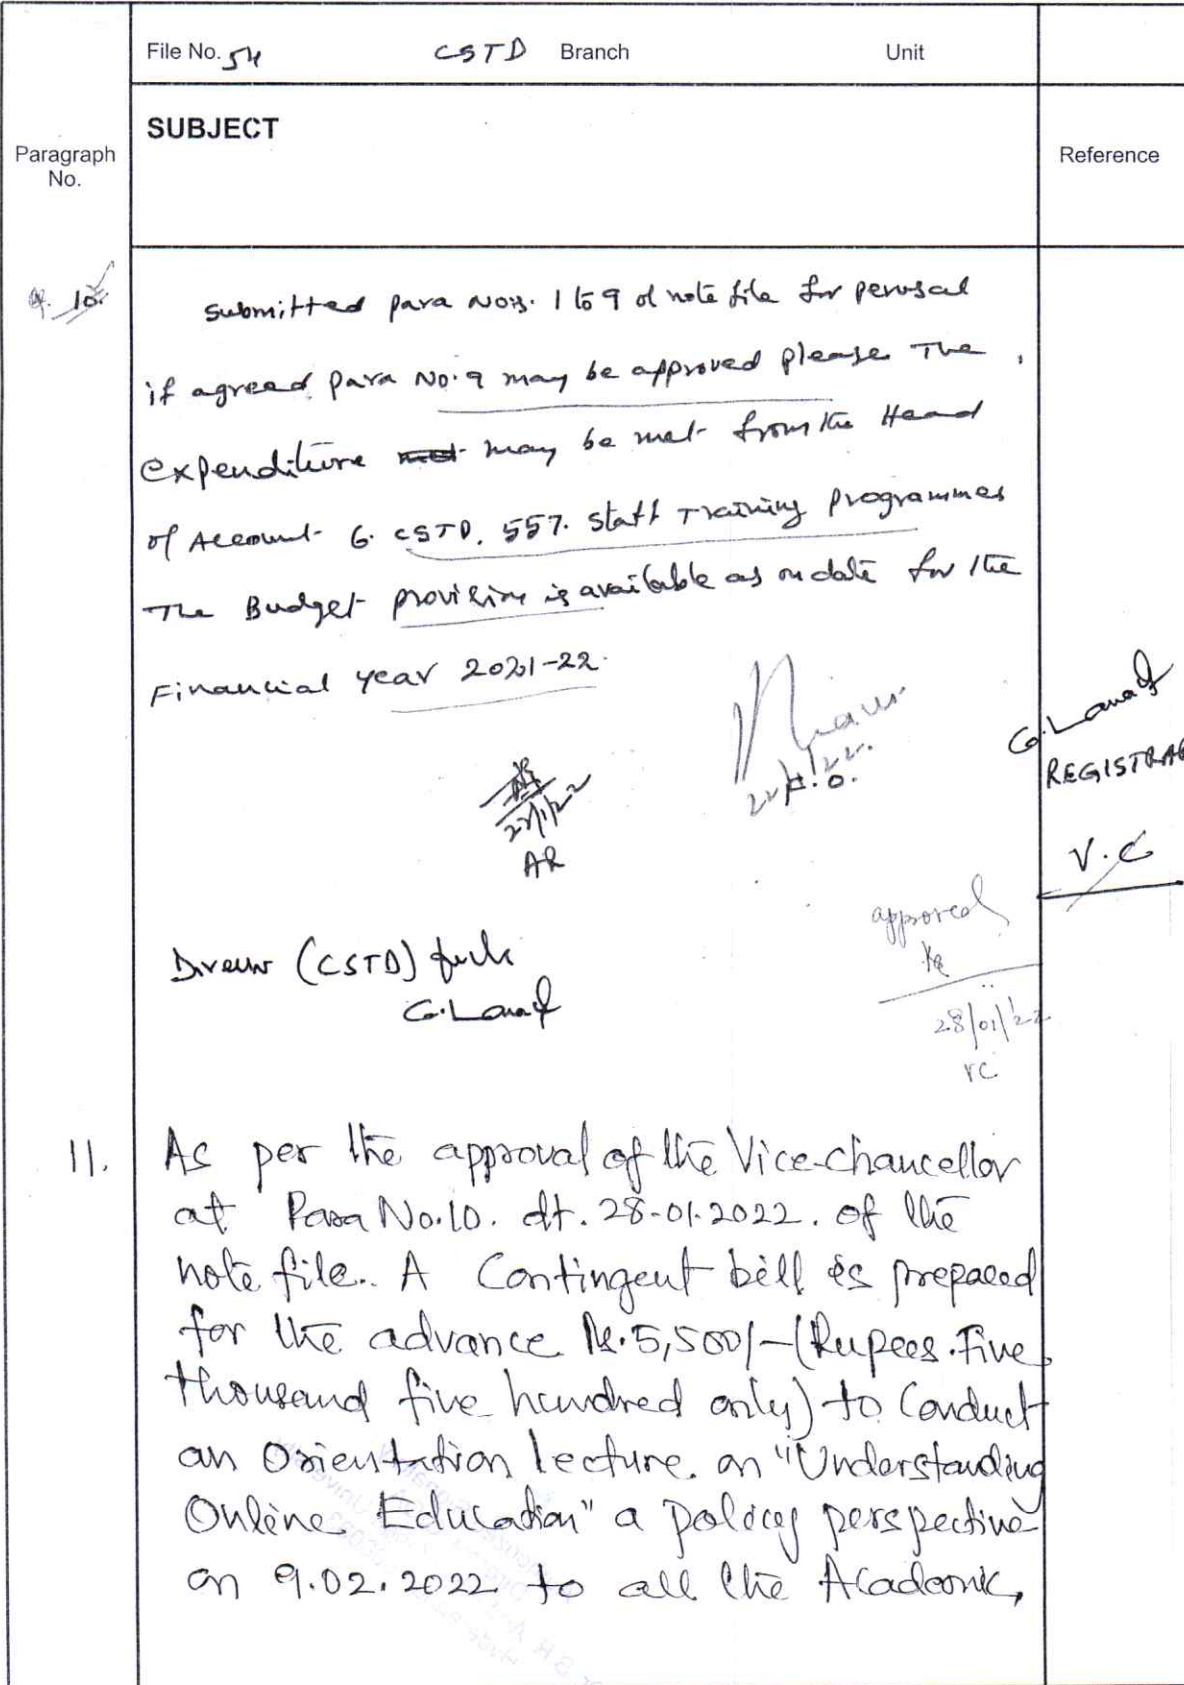 File No. 54 CSTD Branch Unit
SUBJECT
Paragraph No.
Reference
10.
Submitted para Nos. 1 to 9 of note file for perusal
if agreed para No.9 may be approved please The
expenditure may be met from the Head
of Account G. CSTD. 557. Staff Training programmes
The Budget provision is available as on date for the
Financial year 2021-22.
22/1/22.
F.O.
AR
REGISTRAR
V.C
approved
28/01/'22
VC
(CSTD)
11. As per the approval of the Vice-chancellor
at Para No.10. dt. 28-01-2022. of the
note file.. A Contingent bill is prepared
for the advance Rs.5,500/-(Rupees.Five
thousand five hundred only) to Conduct
an Orientation lecture. on "Understanding
Online Education" a policy perspective
on 9.02.2022 to all the Academic,